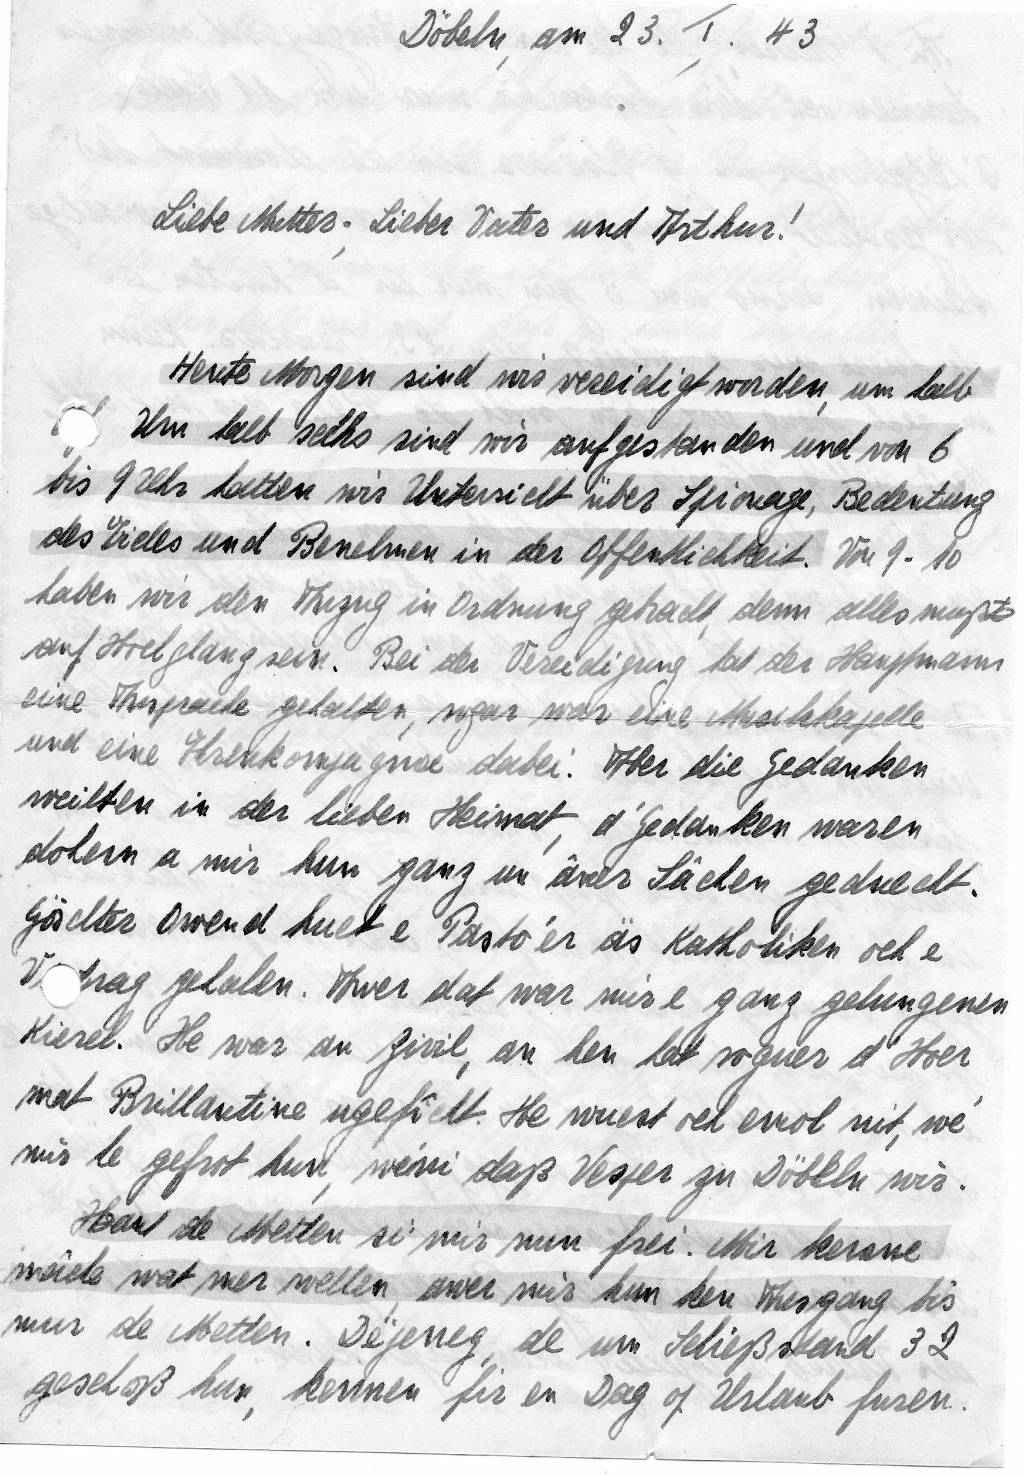 Döbeln, am 23. I. 43
Liebe Mutter, Lieber Vater und Arthur!
Heute Morgen sind wir vereidigt worden, um halb
Um halb sechs sind wir aufgestanden und von 6
bis 9 Uhr hatten wir Unterricht über Spionage, Bedeutung
des Eides und Benehmen in der Öffentlichkeit. Von 9-10
haben wir den Anzug in Ordnung gebracht, denn alles mußte
auf Hochglanz sein. Bei der Vereidigung hat der Hauptmann
eine Ansprache gehalten, sogar war eine Musikkapelle
und eine Ehrenkompagnie dabei. Aber die Gedanken
weilten in der lieben Heimat, d'Gedanken waren
dohem a mir hun ganz un âner Sâchen geduecht.
Göschter Owend huet e Pasto'er äs Katholiken och e
Vortrag gehalen. Awer dat war mir e ganz gelungenen
Kierel. He war an Zivil, an hen hat soguer d'Hoer
mat Brillantine ugefîcht. He wuest och emol nit, wé
mir he gefrot hun, wéini daß Vesper zu Döbeln wir.
Haut de Metten si mir nun frei. Mir kenne
mâche wat mer wellen, awer mir hun ken Ausgang bis
mur de Metten. Dëjeneg, de um Schießstand 32
geschoß hun, kennen fir en Dag of Urlaub furen.